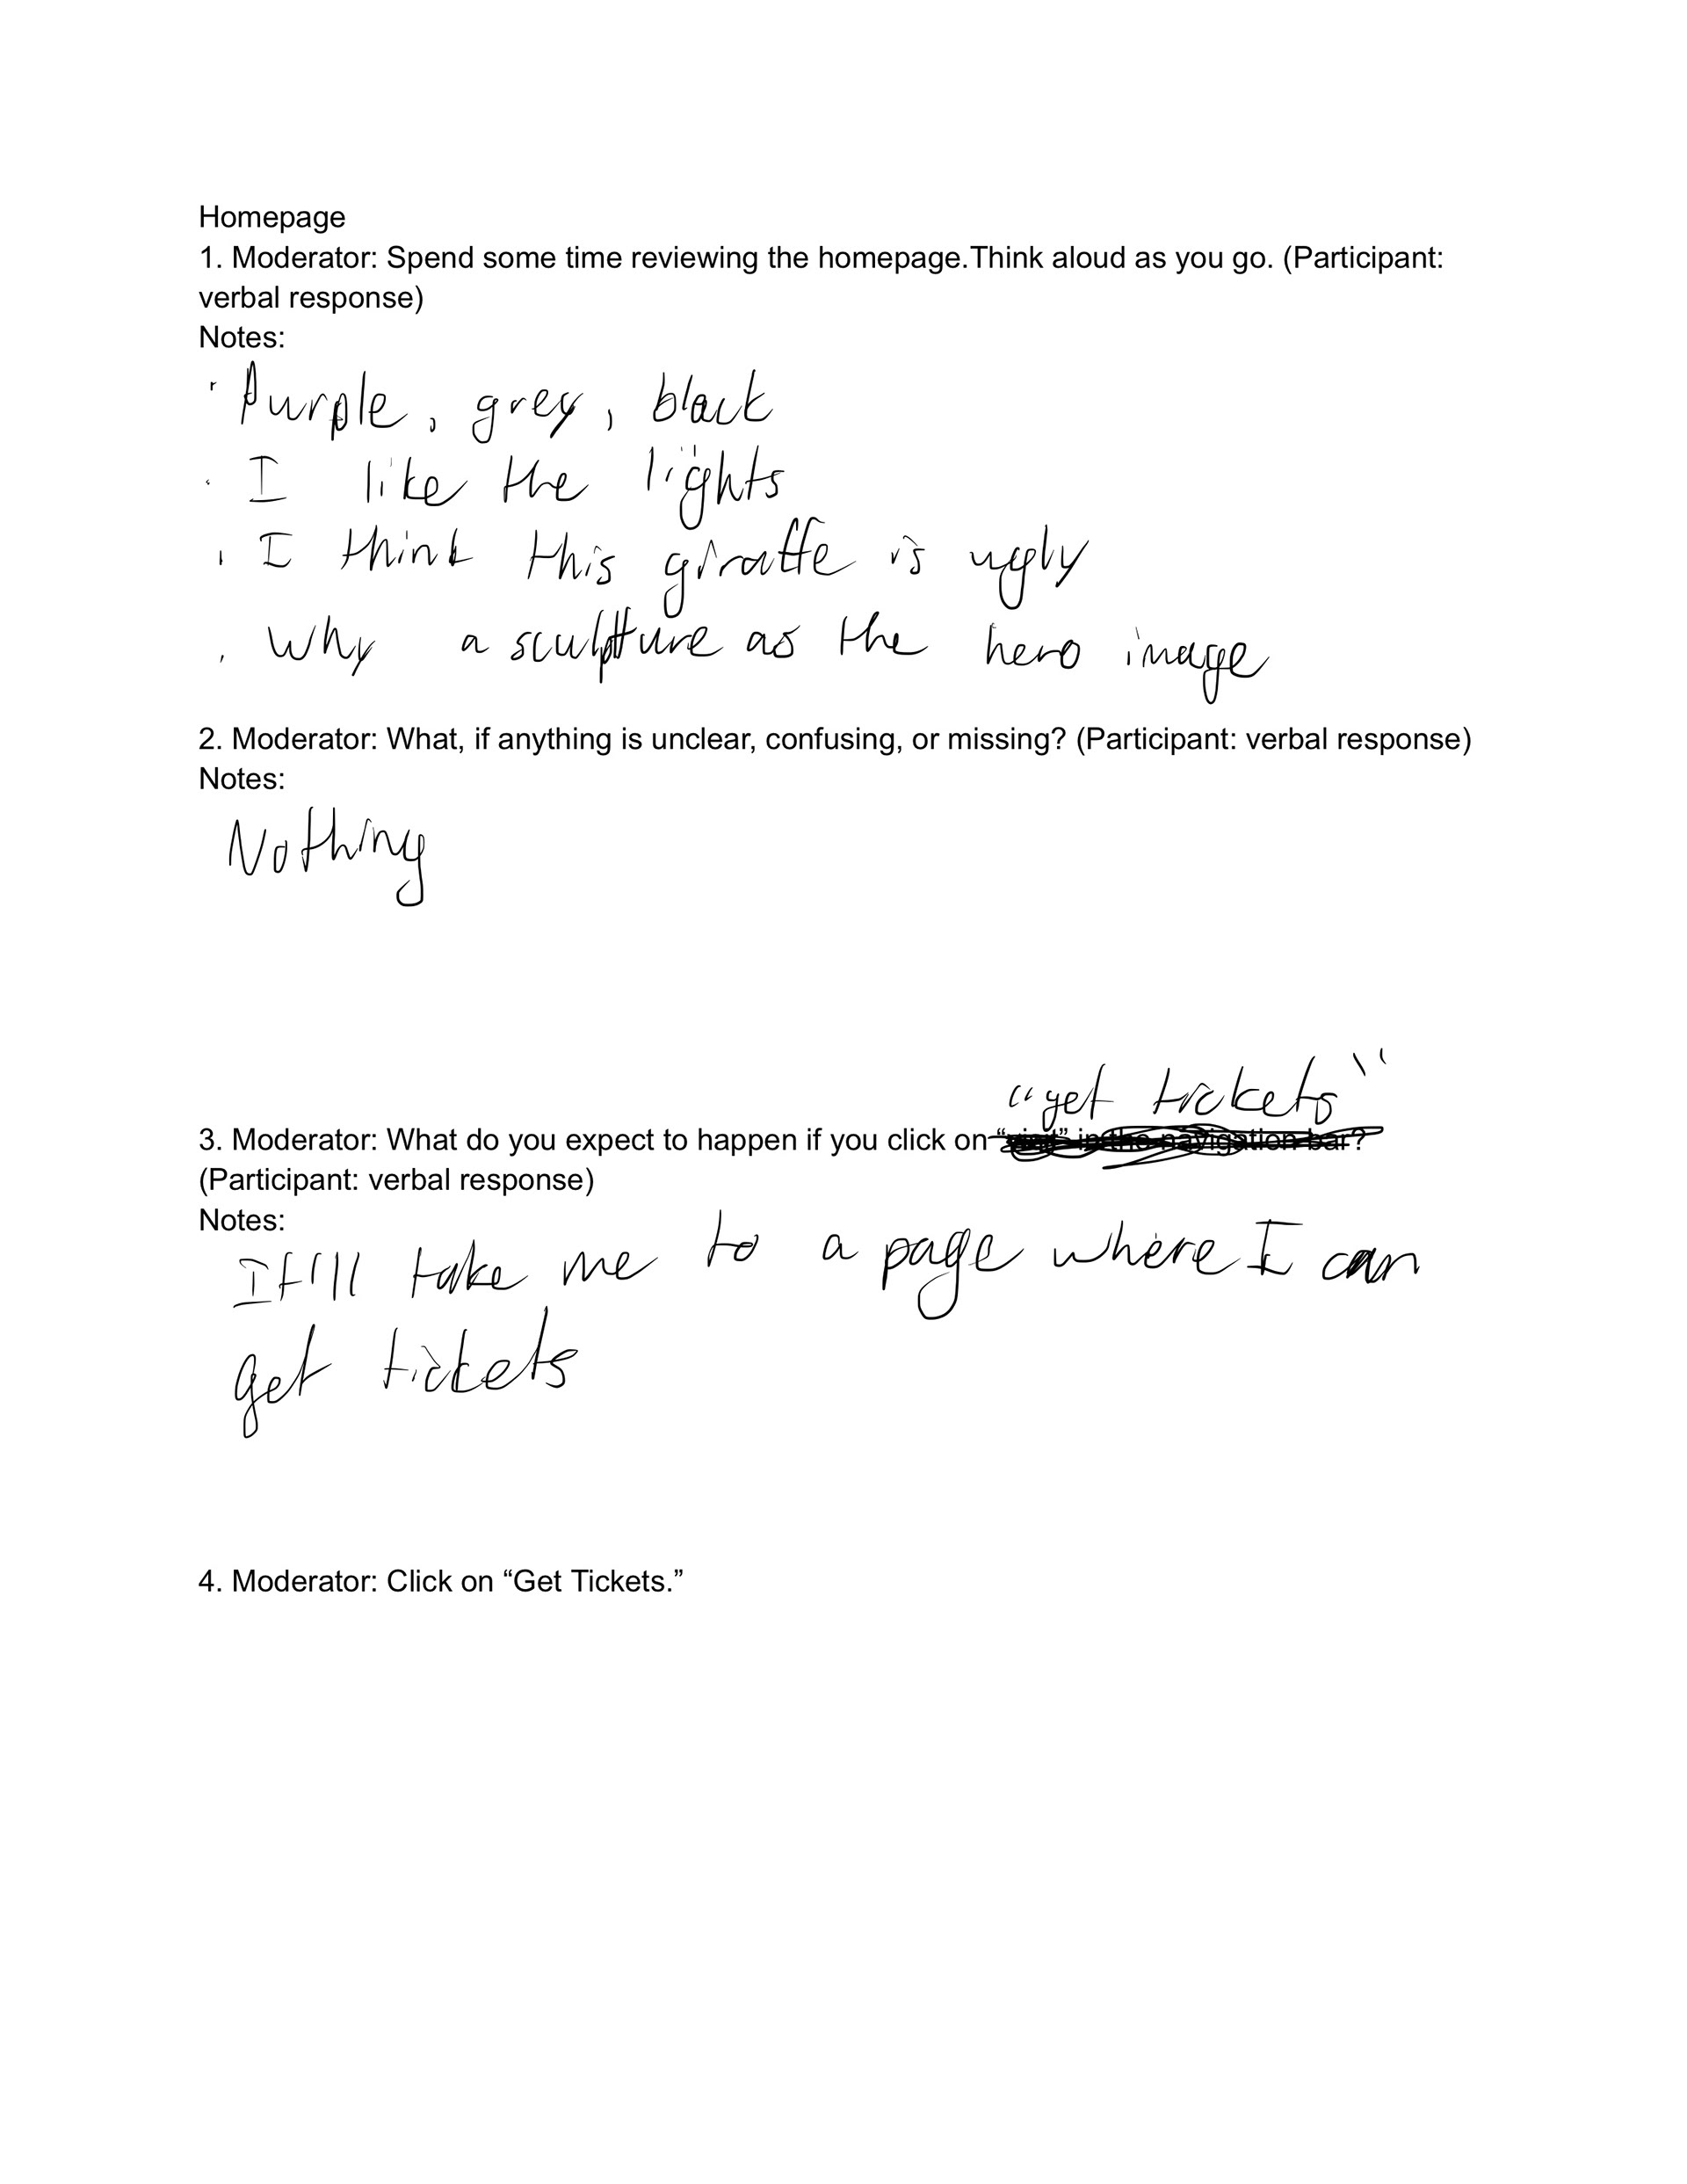 Homepage
1. Moderator: Spend some time reviewing the homepage.Think aloud as you go. (Participant:
verbal response)
Notes:
· Purple, grey, black
· I like the lights
· I think this giraffe is ugly
· Why a sculpture as the hero image
2. Moderator: What, if anything is unclear, confusing, or missing? (Participant: verbal response)
Notes:
Nothing
"get tickets"
3. Moderator: What do you expect to happen if you click on “visit” in the navigation bar?
(Participant: verbal response)
Notes:
It'll take me to a page where I can
get tickets
4. Moderator: Click on “Get Tickets.”